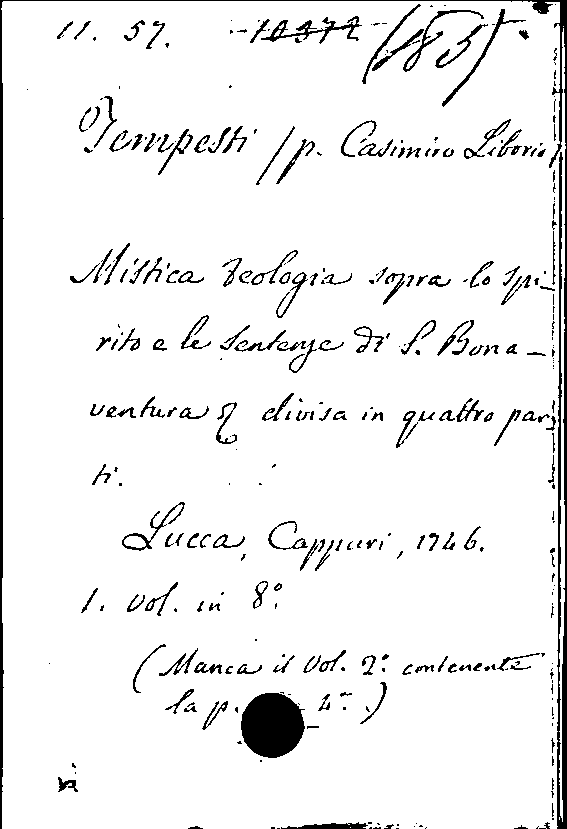 11. 57. 10372 (185)
Tempesti (p. Casimiro Liborio)
Mistica teologia sopra lo spi-
rito e le sentenze di S. Bona-
ventura divisa in quattro par-
ti.
Lucca, Cappuri, 1746.
1. vol. in 8°.
(Manca il vol. 2° contenente
la p. 4ª.)